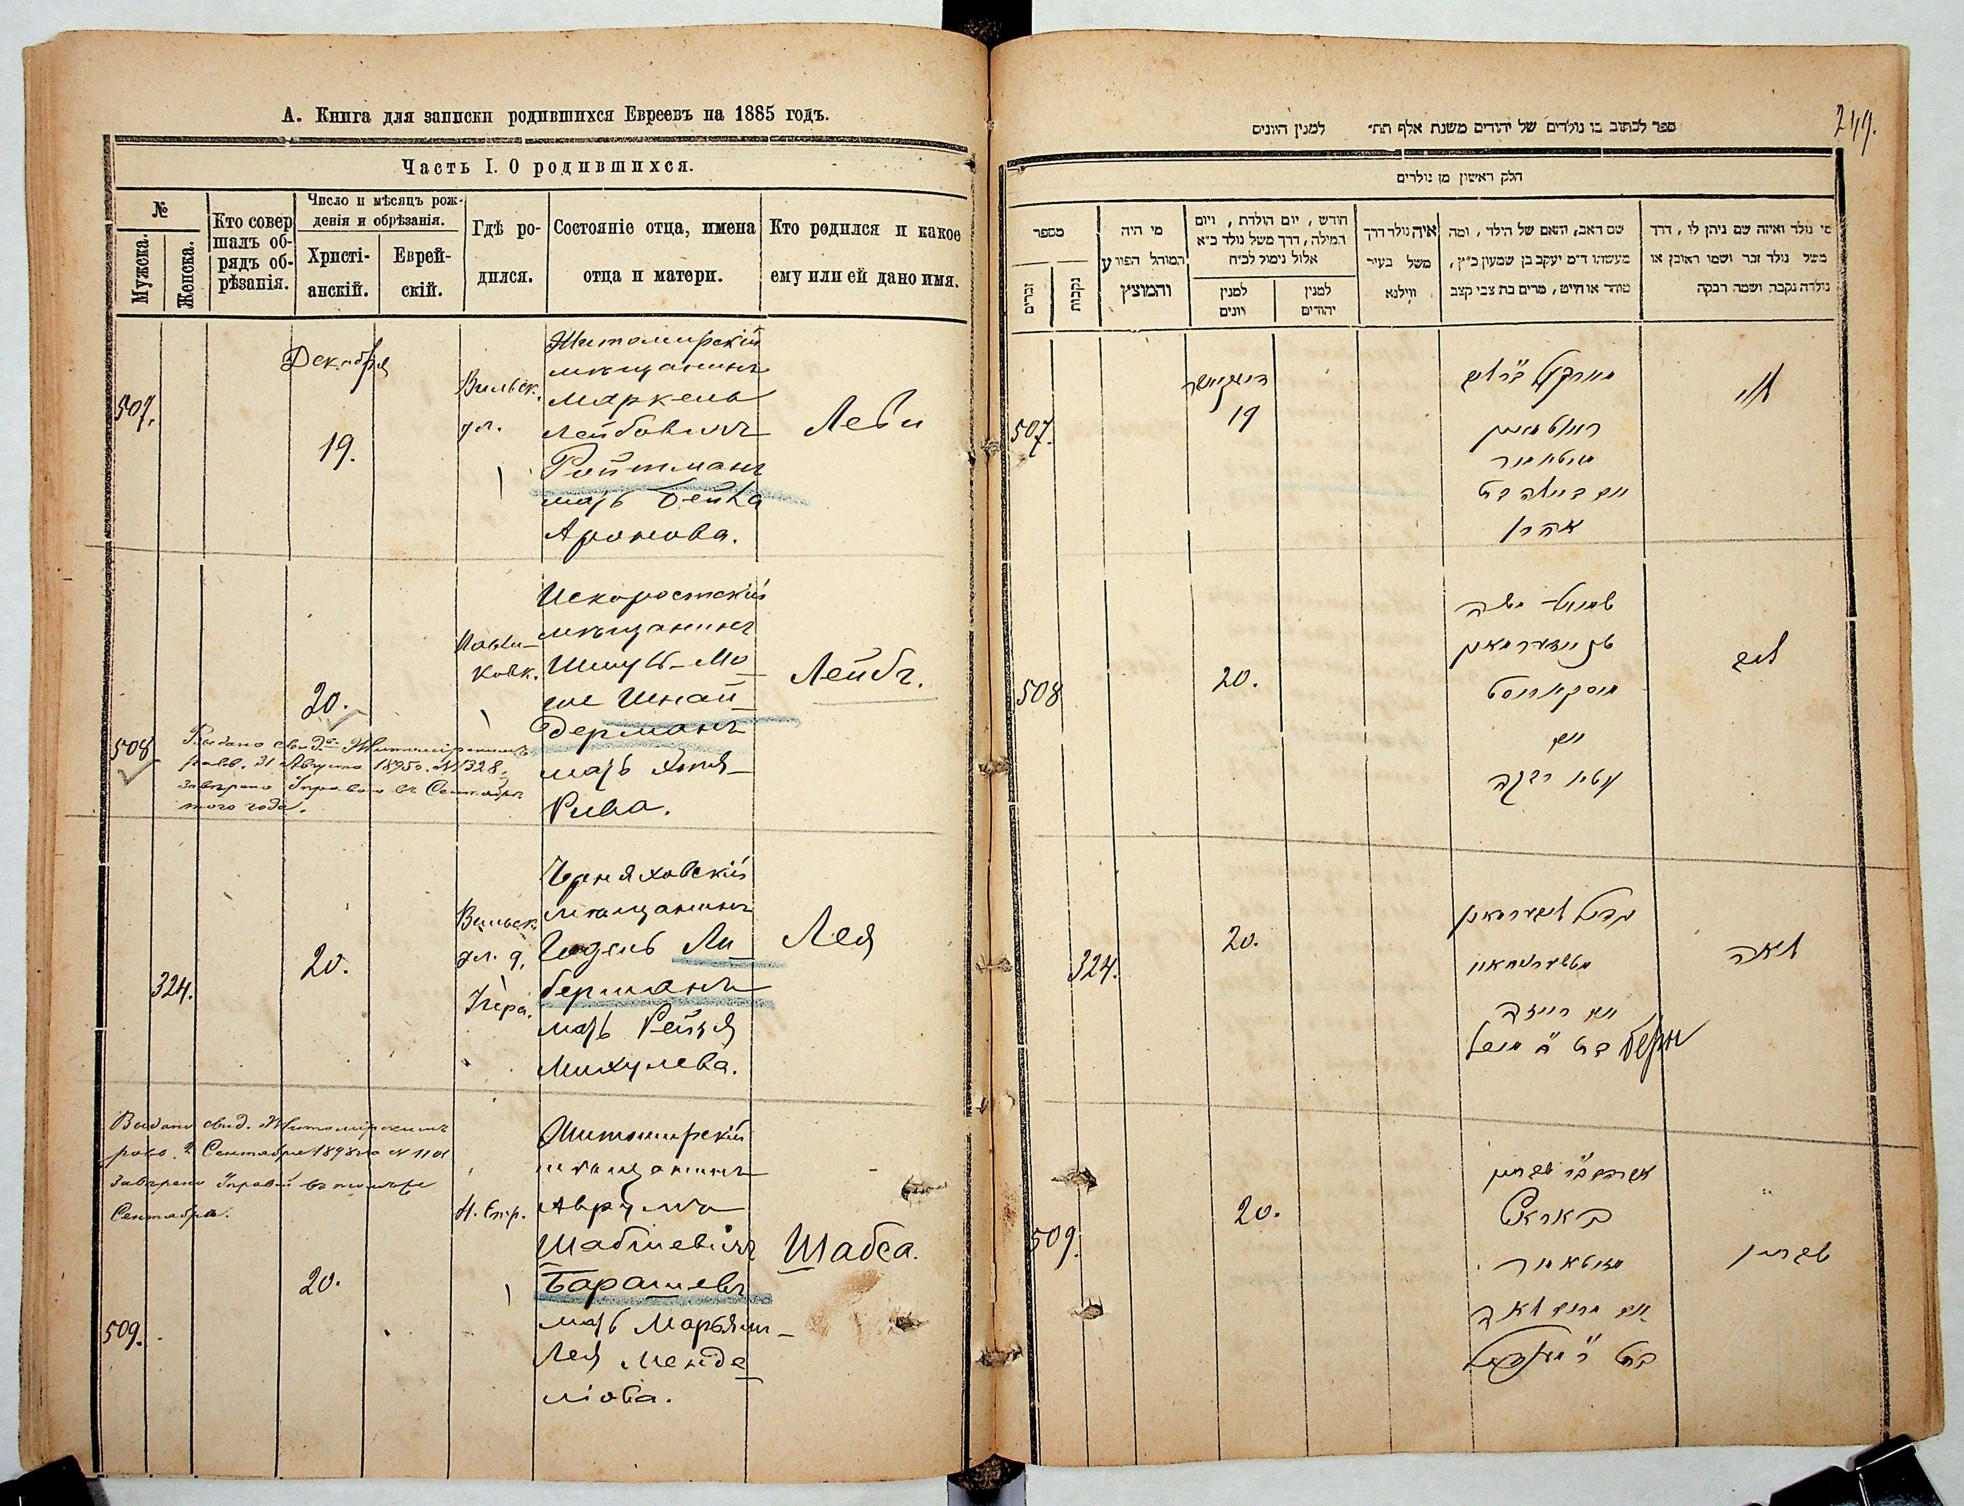 А. Книга для записки родившихся Евреевъ на 1885 годъ.
Часть I. О родившихся.
№
Мужска.
Женска.
Кто совер
шалъ об-
рядъ об-
рѣзанія.
Число и мѣсяцъ рож-
денія и обрѣзанія.
Христі-
анскій.
Еврей-
скій.
Гдѣ ро-
дился.
Состояніе отца, имена
отца и матери.
Кто родился и какое
ему или ей дано имя.
507.
Декабря
19.
Вильск.
ул.
Житомирскій
мѣщанинъ
Маркель
Лейбовичъ
Ройтманъ
мать Бейла
Аронова.
Леви
508
20.
Выдано свид. Житомірскимъ
равв. 31 Августа 1895 г. №1328.
завѣрено Управою въ Сентябрѣ
того года.
Искоростскій
мѣщанинъ
Шмуль-Мо
ше Шнай
дерманъ
мать
Рива.
Лейбъ.
324.
20.
Вильск.
ул. д.
Черняховскій
мѣщанинъ
Годель Ли
берманъ
мать Рейзя
Михулева.
Лея
Выдано свид. Житомірскимъ
равв. 2 Сентября 1898 го № 1101
завѣрено Управой въ томъ же
Сентября.
509.
20.
Житомирскій
мѣщанинъ
Аврумъ
Шабшевичъ
Барашевъ
мать Марьям-
Лея Менде
ліова.
Шабса.
249.
ספר לכתוב בו נולדים של יהודים משנת אלף תת״ למנין היונים
חלק ראשון מן נולדים
מספר
זכרים
נקבות
מי היה
המוהל הפורע
והמוצץ
חודש, יום הולדת, ויום
המילה, דרך משל נולד כ״א
אלול נימול לכ״ח
למנין
יונים
למנין
יהודים
איה נולד דרך
משל בעיר
ווילנא
שם האב, והאם של הילד, ומה
מעשהו ד״מ יעקב בן שמעון כ״ץ,
סוחר או חייט, מרים בת צבי קצב
מי נולד ואיזה שם ניתן לו, דרך
משל נולד זכר ושמו ראובן או
נולדה נקבה ושמה רבקה
507.
19
רויטמאן
זיטאמיר
אם ביילה בת
אהרן
לוי
508
20.
שמואל משה
שניידערמאן
אם
רבקה
לייב
324.
20.
ליבערמאן
אם רייזה
לאה
509.
20.
זיטאמיר
אם מרים לאה